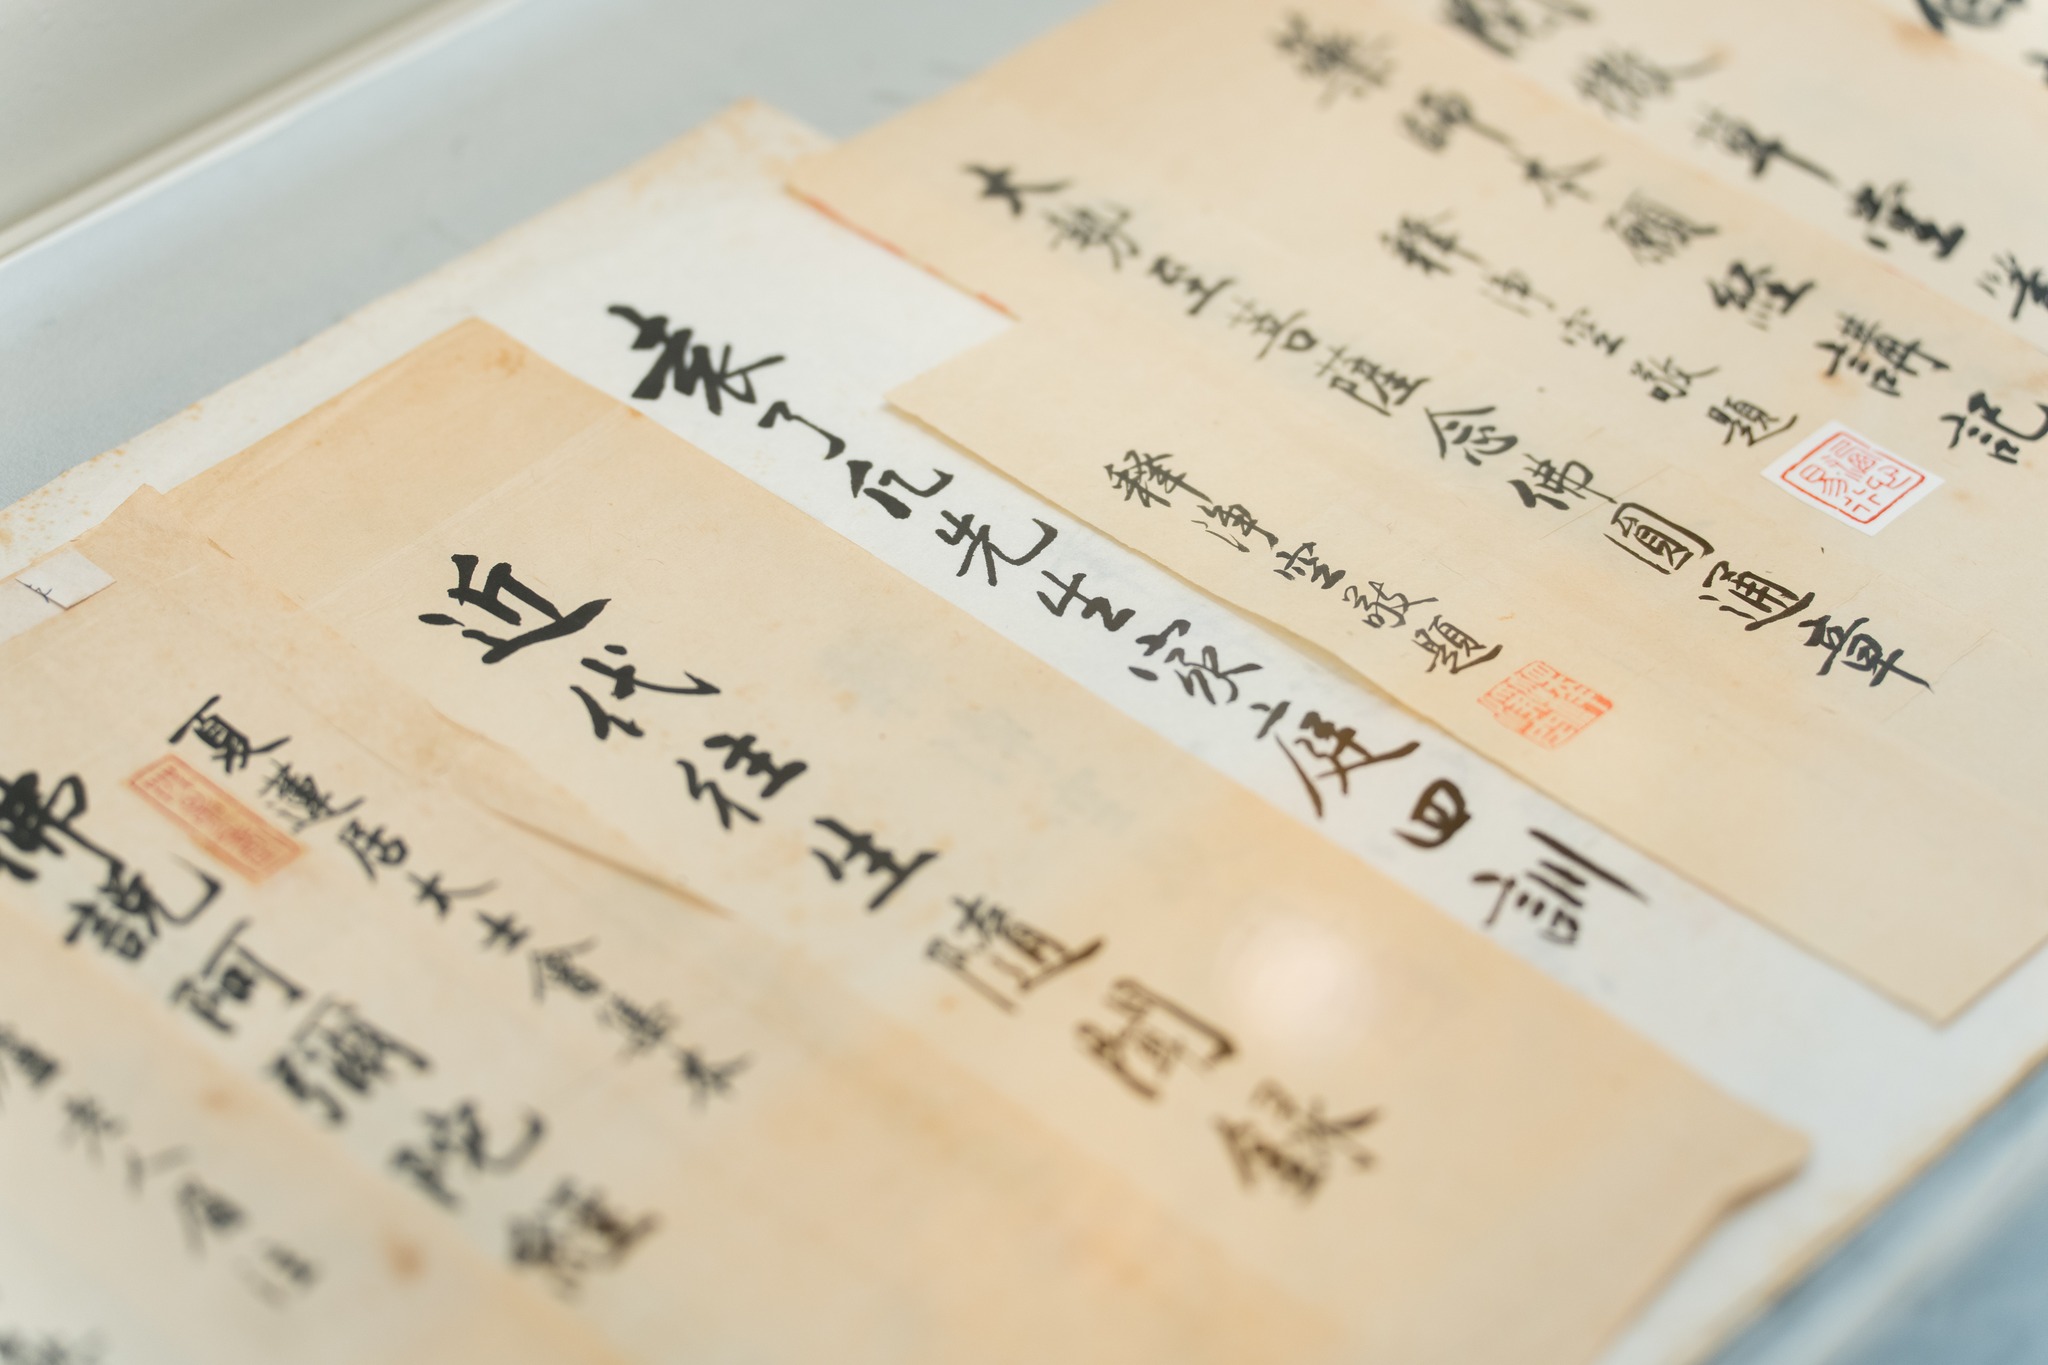 草堂筆
藥師本願經講記
釋淨空敬題
大勢至菩薩念佛圓通章
釋淨空敬題
袁了凡先生家庭四訓
近代往生隨聞錄
夏蓮居大士會集本
佛說阿彌陀經
老人